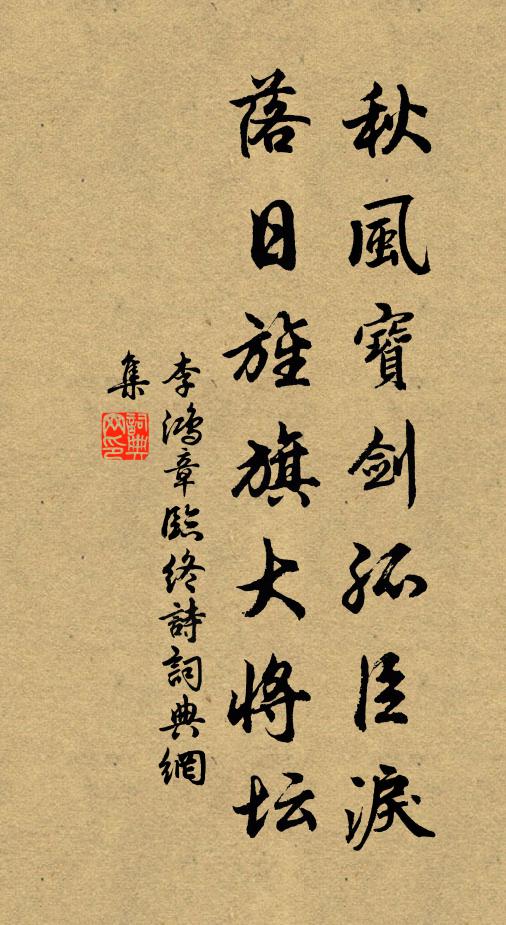 秋風寶劍孤臣淚
落日旌旗大將坛
李鴻章臨終詩詞典網
集
詞典網印